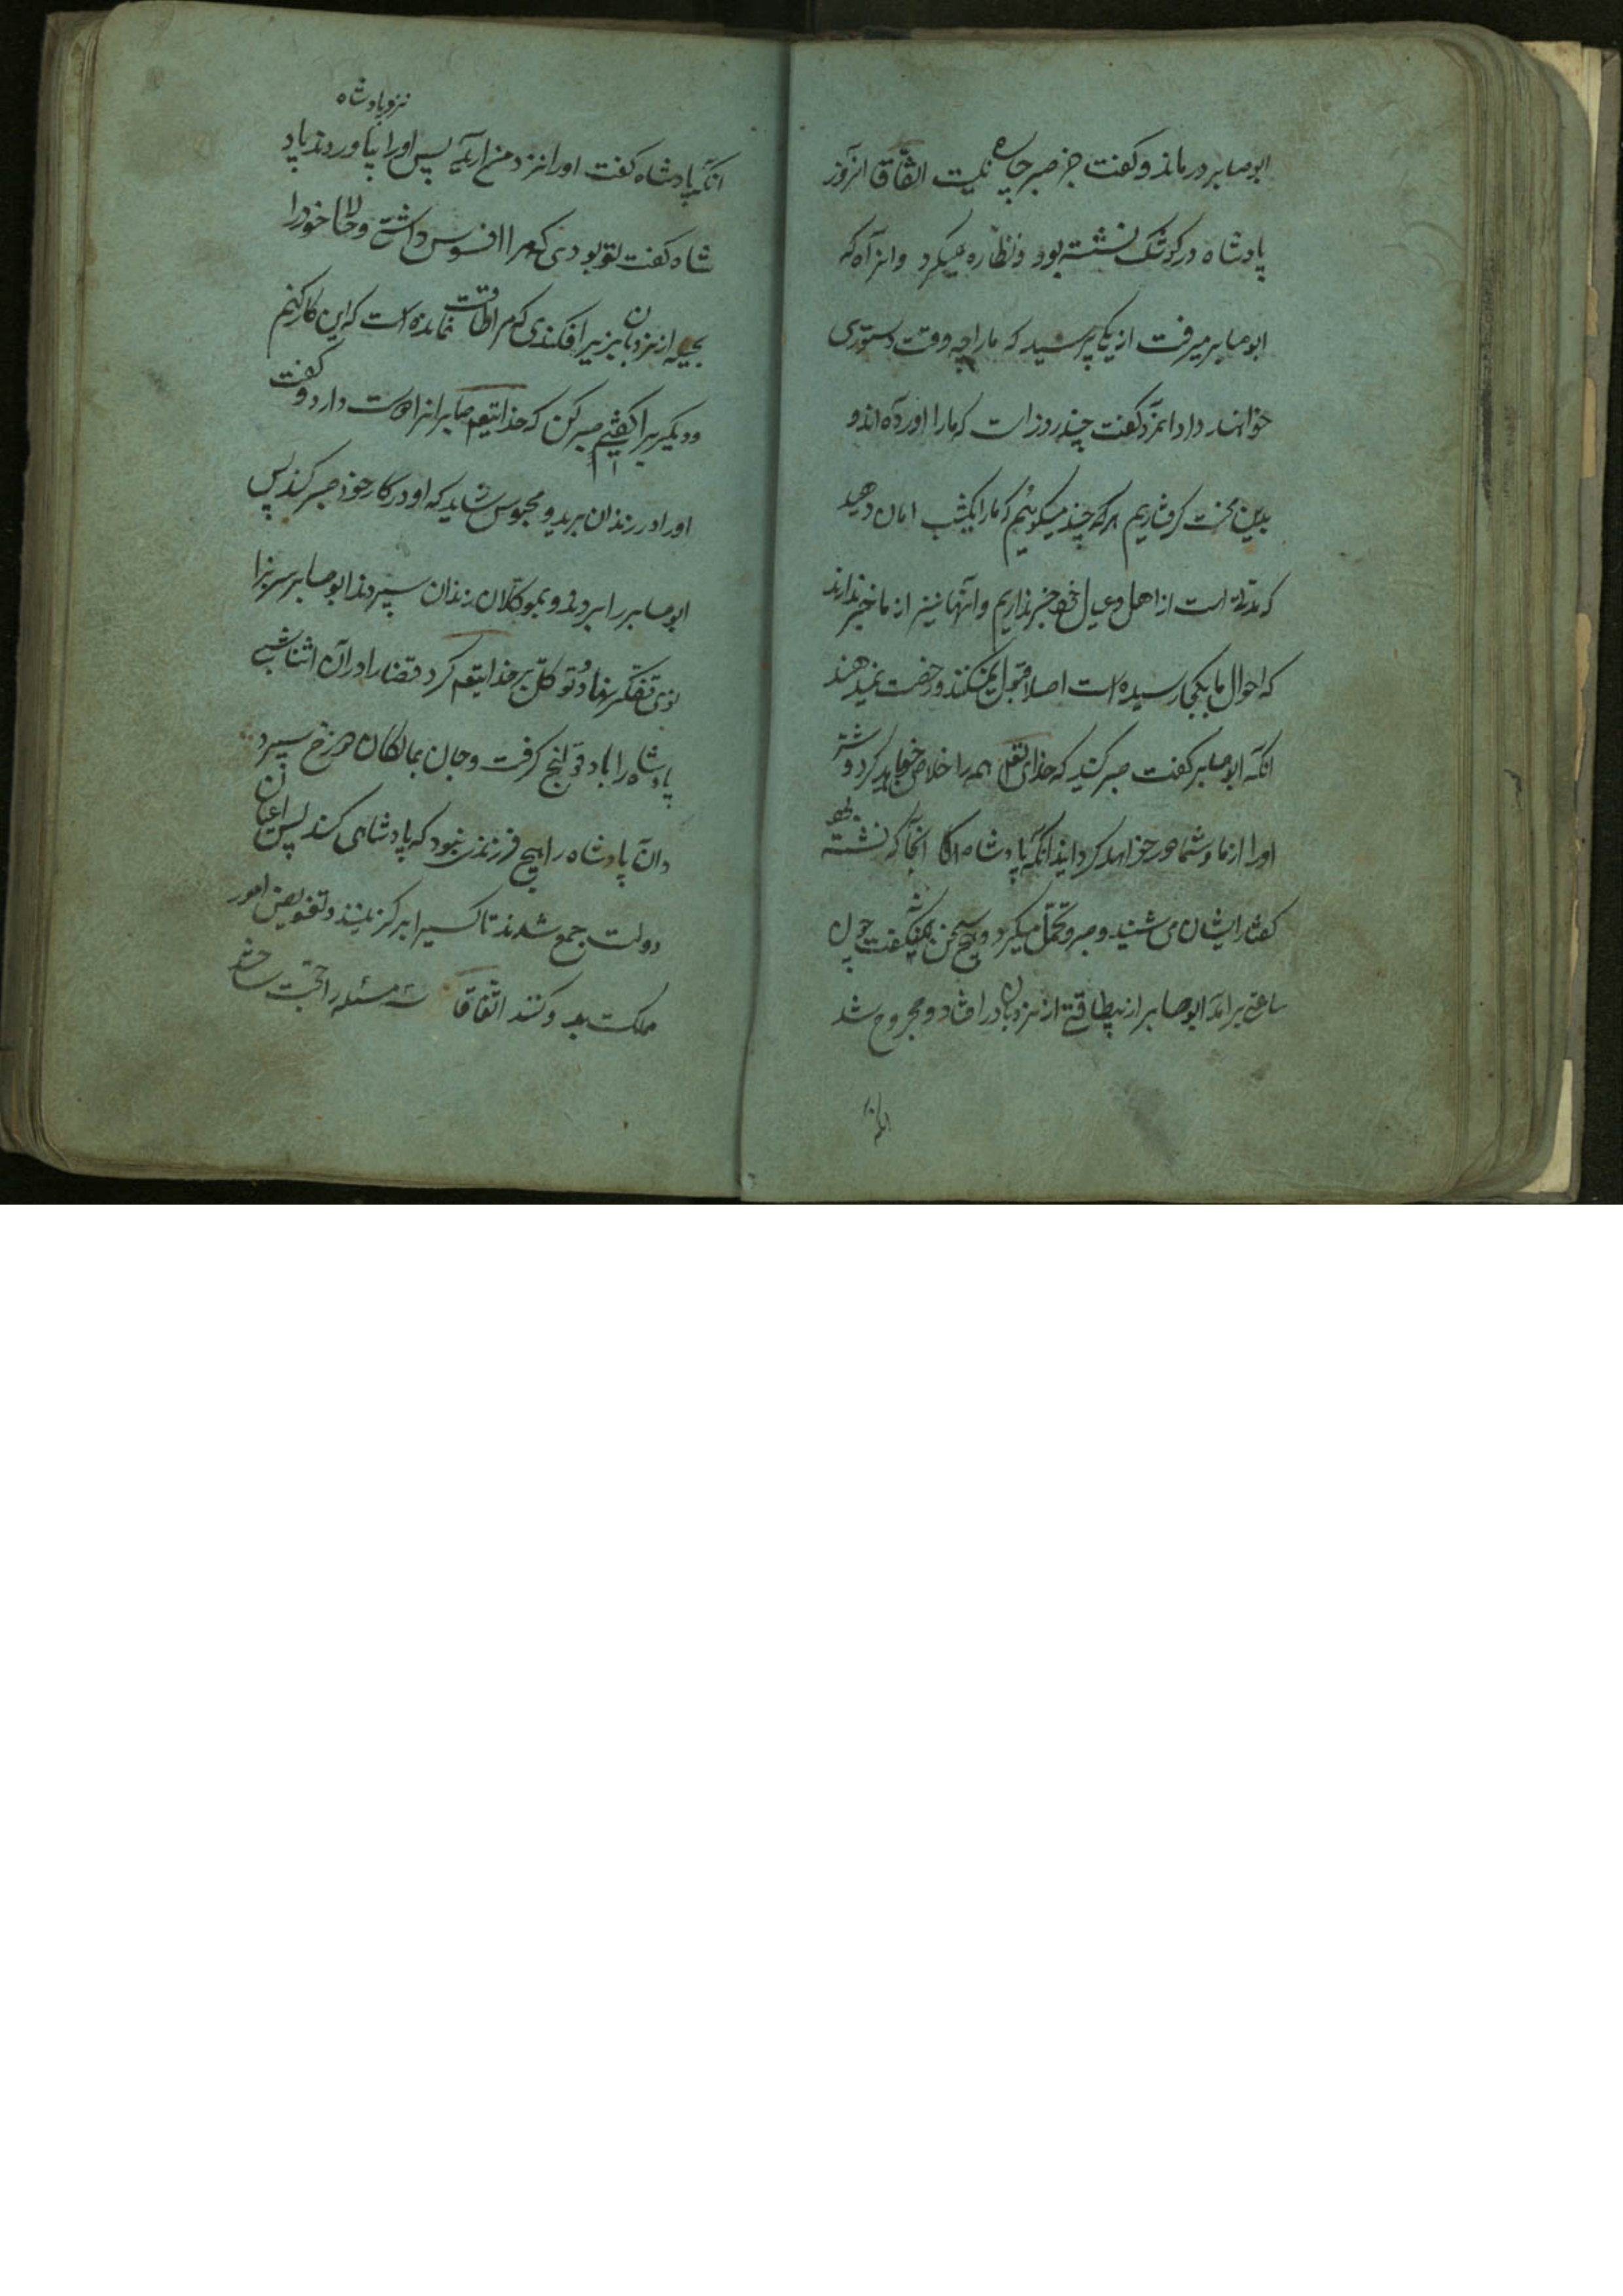 ابو صابر درماند و کفت جز صبر چاره نیست اتفاقا انروز
پادشاه در کوشک نشسته بود و نظاره میکرد و انراه که
ابو صابر میرفت از یکی پرسید که ما را چه وقت دستوری
خواهند داد انمرد کفت چند روز است که ما را آورده اند و
بدین محنت کرفتاریم هر چند میکوئیم که ما را یکشب امان دهید
که مدتی است از اهل و عیال خود خبر نداریم و آنها نیز از ما خبر ندارند
که احوال ما بکجا رسیده است اصلا قبول نمیکنند و رخصت نمیدهند
انکه ابو صابر کفت صبر کنید که خدای تعالی همه را خلاص خواهد کرد و شر
او را از ما و شما دور خواهد کردانید انکه پادشاه انجا که نشسته بود
کفتار ایشان می شنید و صبر و تحمل میکرد و هیچ سخن نمیکفت چون
ساعتی برامد ابو صابر از بیطاقتی از نردبان در افتاد و مجروح شد
انکه
نزد پادشاه
انکه پادشاه کفت او را نزد من ارید پس او را بیاوردند پاد
شاه کفت تو بودی که مرا افسوس داشتی و حالا خود را
بحیله از نردبان بزیر افکندی که مرا طاقت نمانده است که این کار کنم
و دیکر یرا کفتی صبر کن که خدایتعم صابرانرا دوست دارد و کفت
او را در زندان برید و محبوس شاید که او در کار خود صبر کند پس
ابو صابر را بردند و بموکلان زندان سپردند ابو صابر سر بزا
نوی تفکر نهاد و توکل بر خدایتعم کرد قضا را در آن اثنا شبی
پادشاه را باد قولنج کرفت و جان بمالکان دوزخ سپرد
و ان پادشاه را هیچ فرزند نبود که پادشاهی کند پس اعیان
دولت جمع شدند تا کسیرا بر کزینند و تفویض امور
مملکت بدو کنند اتفاقا سه مسئله را حجت ساختند